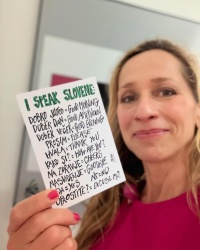 I SPEAK SLOVENE:
DOBRO JUTRO = GOOD MORNING
DOBER DAN = GOOD AFTERNOON
DOBER VEČER = GOOD EVENING
PROSIM = PLEASE
HVALA = THANK YOU
KAKO SI? = HOW ARE YOU?
NA ZDRAVJE = CHEERS
NASVIDENJE = GOODBYE
JA = YES NE = NO
OPROSTITE? = EXCUSE ME?